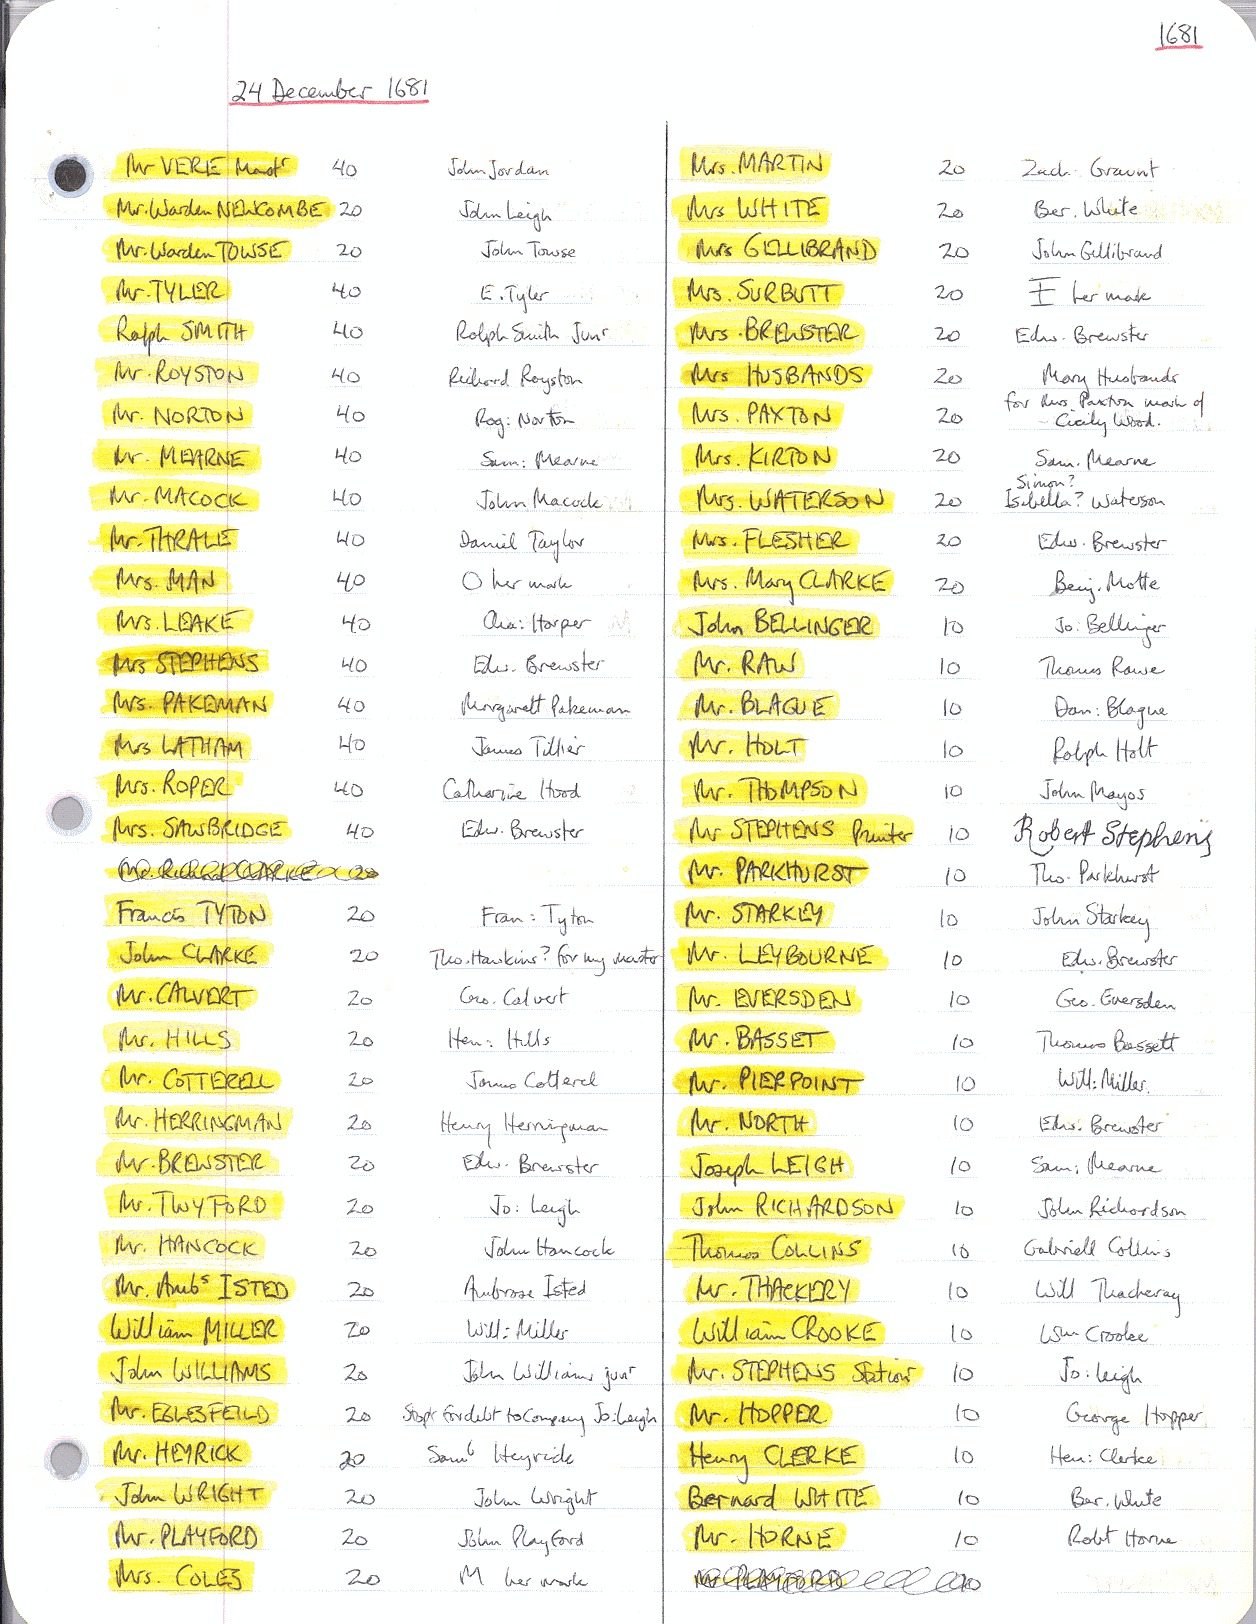 1681
24 December 1681
Mr VERE Mastr 40 John Jordan
Mr. Warden NEWCOMBE 20 John Leigh
Mr. Warden TOWSE 20 John Towse
Mr. TYLER 40 E. Tyler
Ralph SMITH 40 Ralph Smith Junr
Mr. ROYSTON 40 Richard Royston
Mr. NORTON 40 Rog: Norton
Mr. MEARNE 40 Sam: Mearne
Mr. MACOCK 40 John Macock
Mr. THRALE 40 Daniel Taylor
Mrs. MAN 40 O her mark
Mrs. LEAKE 40 Cha: Harper
Mrs STEPHENS 40 Edw. Brewster
Mrs. PAKEMAN 40 Margarett Pakeman
Mrs LATHAM 40 James Tillier
Mrs. ROPER 40 Catharine Hood
Mrs. SAWBRIDGE 40 Edw. Brewster
Mr. Richard CLARKE 20
Francis TYTON 20 Fran: Tyton
John CLARKE 20 Tho. Hawkins? for my master
Mr. CALVERT 20 Geo. Calvert
Mr. HILLS 20 Hen: Hills
Mr. COTTERELL 20 James Cotterel
Mr. HERRINGMAN 20 Henry Herringman
Mr. BREWSTER 20 Edw. Brewster
Mr. TWYFORD 20 Jo: Leigh
Mr. HANCOCK 20 John Hancock
Mr. Ambs ISTED 20 Ambrose Isted
William MILLER 20 Will: Miller
John WILLIAMS 20 John Williams junr
Mr. EGLESFEILD 20 Stopt for debt to Company Jo: Leigh
Mr. HEYRICK 20 Saml Heyrick
John WRIGHT 20 John Wright
Mr. PLAYFORD 20 John Playford
Mrs. COLES 20 M her mark
Mrs. MARTIN 20 Zach. Graunt
Mrs WHITE 20 Ber. White
Mrs GELLIBRAND 20 John Gellibrand
Mrs. SURBUTT 20 I her mark
Mrs. BREWSTER 20 Edw. Brewster
Mrs HUSBANDS 20 Mary Husbands
Mrs. PAXTON 20 for Mrs Paxton mark of
Cicily Wood.
Mrs. KIRTON 20 Sam. Mearne
Simon?
Mrs. WATERSON 20 Isibella? Waterson
Mrs. FLESHER 20 Edw. Brewster
Mrs. Mary CLARKE 20 Benj. Motte
John BELLINGER 10 Jo: Bellinger
Mr. RAW 10 Thomas Rawe
Mr. BLAGUE 10 Dan: Blague
Mr. HOLT 10 Ralph Holt
Mr. THOMPSON 10 John Mayos
Mr STEPHENS Printer 10 Robert Stephens
Mr. PARKHURST 10 Tho. Parkhurst
Mr. STARKEY 10 John Starkey
Mr. LEYBOURNE 10 Edw. Brewster
Mr. EVERSDEN 10 Geo. Eversden
Mr. BASSET 10 Thomas Bassett
Mr. PIERPOINT 10 Will: Miller.
Mr. NORTH 10 Edw. Brewster
Joseph LEIGH 10 Sam: Mearne
John RICHARDSON 10 John Richardson
Thomas COLLINS 10 Gabriell Collins
Mr. THACKERY 10 Will Thackeray
William CROOKE 10 Wm Crooke
Mr. STEPHENS Stationr 10 Jo: Leigh
Mr. HOPPER 10 George Hopper
Henry CLERKE 10 Hen: Clerke
Bernard WHITE 10 Ber. White
Mr. HORNE 10 Robt Horne
Mr PLAYFORD 20